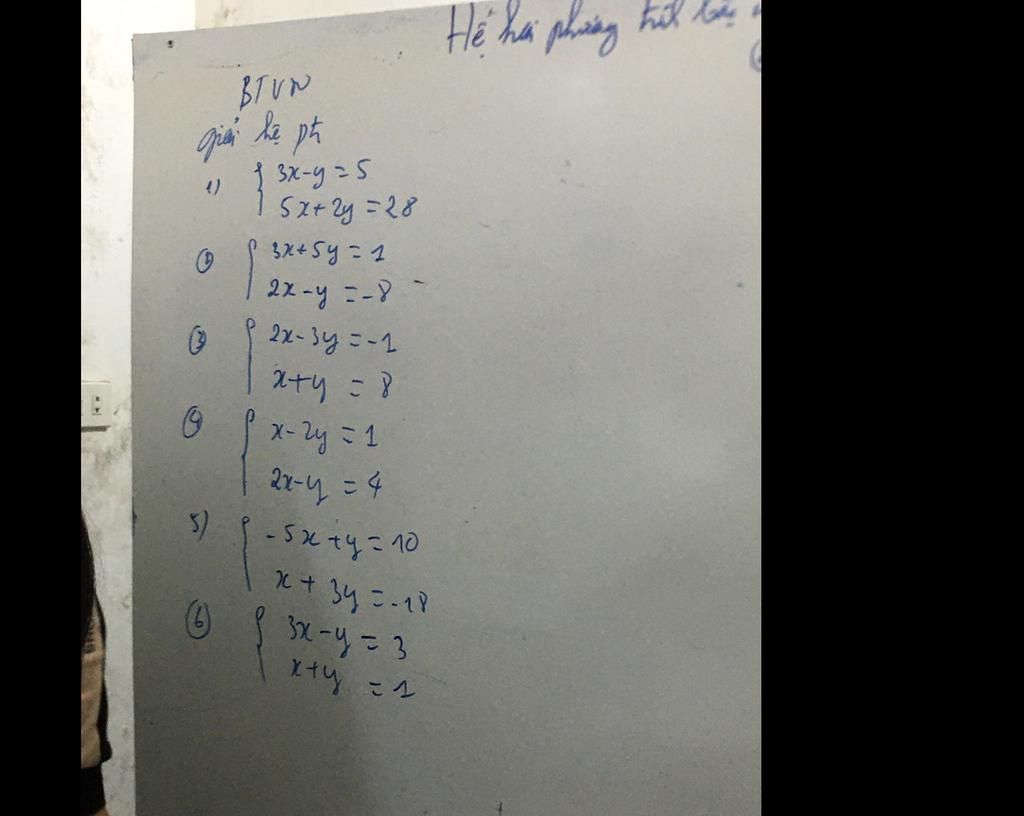 Hệ hai phương trình bậ
BTVN
giải hệ pt
1) 3x-y=5
5x+2y=28
② 3x+5y=1
2x-y=-8
③ 2x-3y=-1
x+y=8
④ x-2y=1
2x-y=4
5) -5x+y=10
x+3y=-18
⑥ 3x-y=3
x+y=1